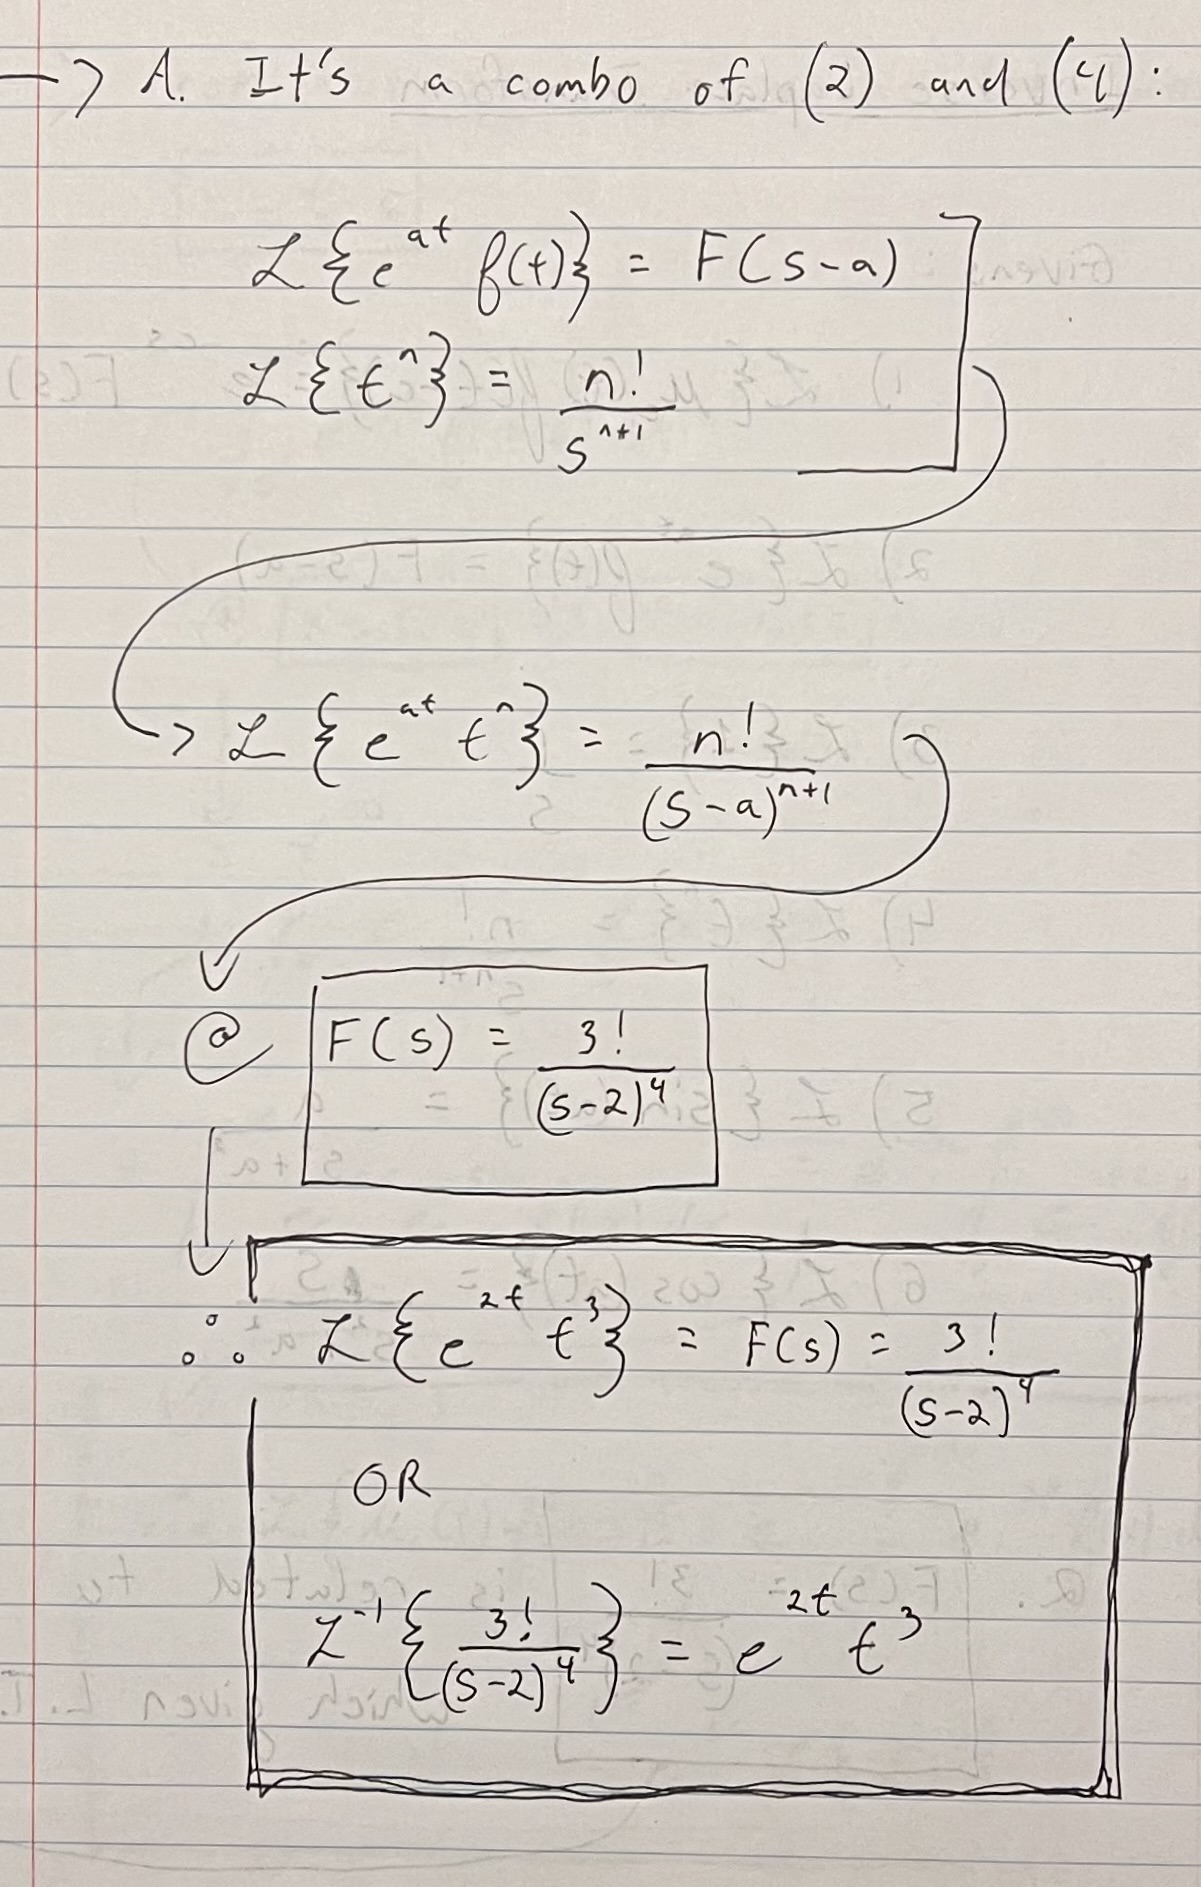 → A. It's a combo of (2) and (4):
ℒ{e^{at} f(t)} = F(s-a)
ℒ{t^n} = n!/s^{n+1}
→ ℒ{e^{at} t^n} = n!/(s-a)^{n+1}
@ F(s) = 3!/(s-2)^4
∴ ℒ{e^{2t} t^3} = F(s) = 3!/(s-2)^4
OR
ℒ^{-1}{3!/(s-2)^4} = e^{2t} t^3